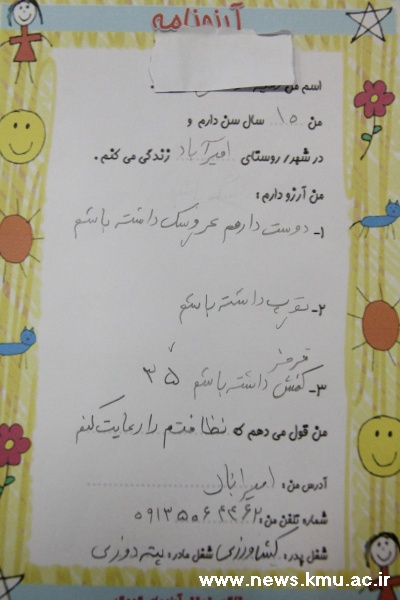 آرزونامه
اسم من
من ۱۵ سال سن دارم و
در شهر/ روستای امیرآباد زندگی می کنم .
من آرزو دارم :
۱- دوست دارم عروسک داشته باشم
۲- توپ داشته باشم
قرمز
۳- کفش داشته باشم ۳۵
من قول می دهم که نظافتم را رعایت کنم
آدرس من: امیراباد
شماره تلفن من:
شغل پدر: کشاورزی شغل مادر: پته دوزی
www.news.kmu.ac.ir